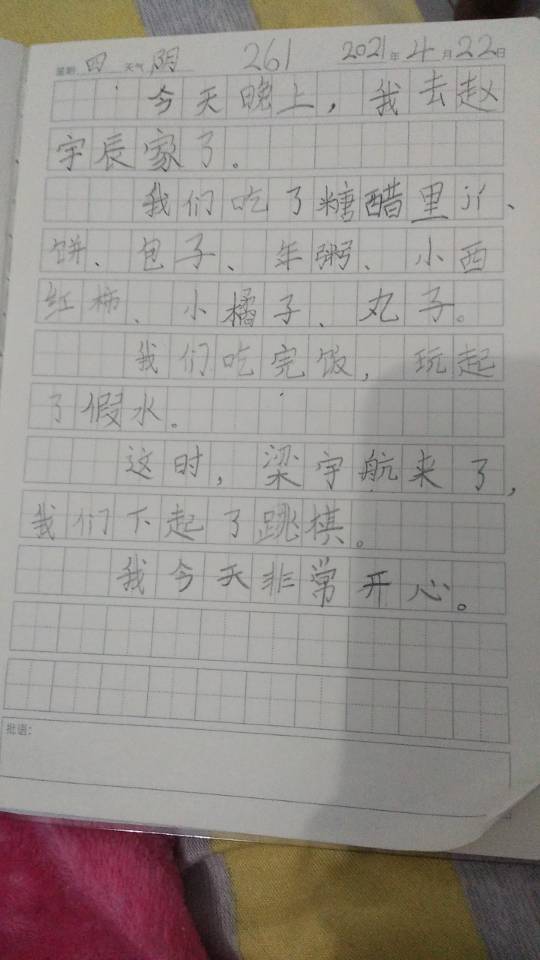 星期 四 天气 阴 261 2021年4月22日
今天晚上，我去赵
宇辰家了。
我们吃了糖醋里丬、
饼、包子、年粥、小西
红柿、小橘子、丸子。
我们吃完饭，玩起
了假水。
这时，梁宇航来了，
我们下起了跳棋。
我今天非常开心。
批语：